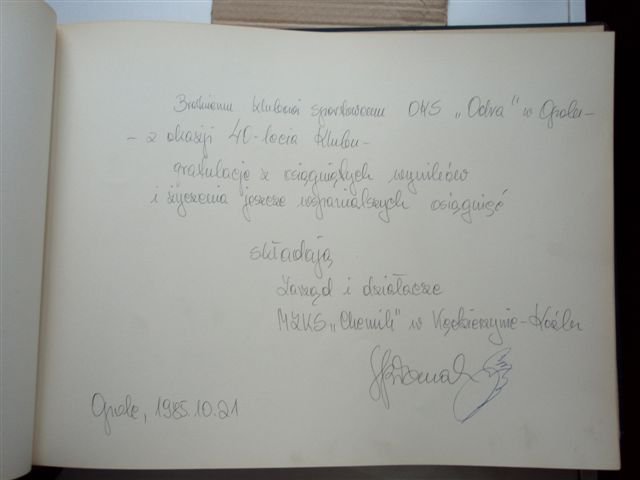 Bratniemu Klubowi Sportowemu OKS „Odra" w Opolu -
- z okazji 40-lecia Klubu -
gratulacje z osiągniętych wyników
i życzenia jeszcze wspanialszych osiągnięć
składają
Zarząd i działacze
MZKS „Chemik" w Kędzierzynie-Koźlu
Opole, 1985.10.21